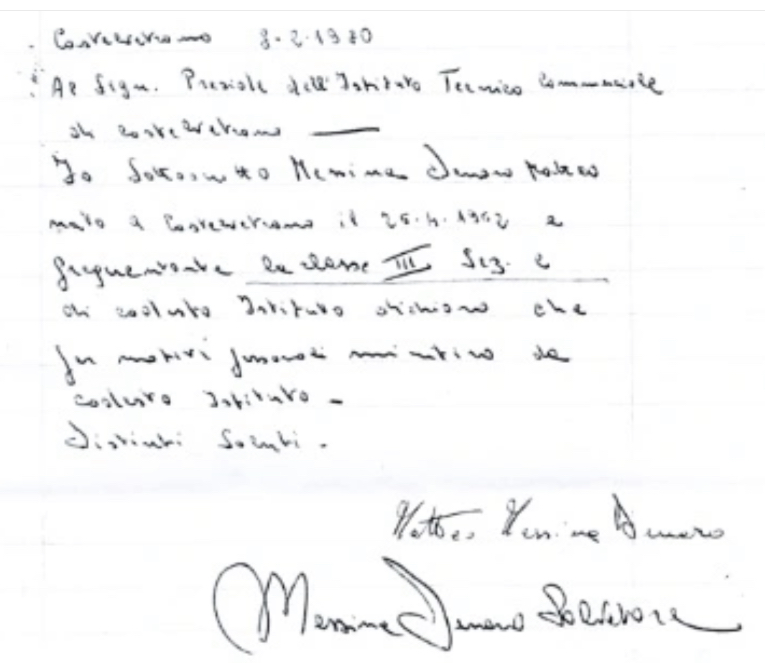 Castelvetrano 8-2-1980
Al Sign. Preside dell'Istituto Tecnico Commerciale
di Castelvetrano
Io Sottoscritto Messina Denaro Matteo
nato a Castelvetrano il 26.4.1962 e
frequentante la classe III Sez. E
di codesto Istituto dichiaro che
per motivi personali mi ritiro da
codesto Istituto -
Distinti Saluti -
Matteo Messina Denaro
Messina Denaro Salvatore